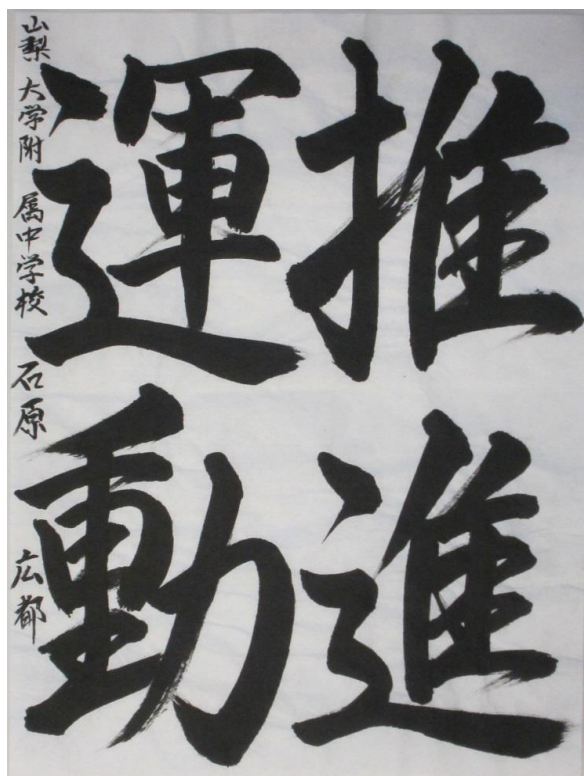 推進
運動
山梨大学附属中学校 石原 広都